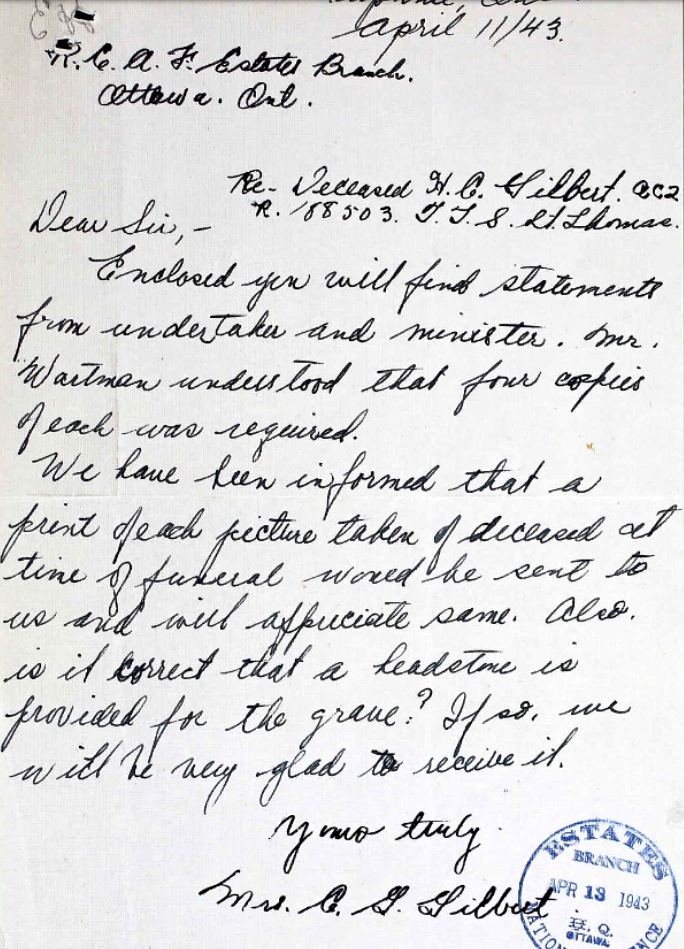 April 11/43.
R. C. A. F. Estates Branch.
Ottawa. Ont.
Re- Deceased H. C. Gilbert. AC2
R. 188503. T. T. S. St. Thomas.
Dear Sir,-
Enclosed you will find statements
from undertaker and minister. Mr.
Wartman understood that four copies
of each was required.
We have been informed that a
print of each picture taken of deceased at
time of funeral would be sent to
us and will appriciate same. Also.
is it correct that a headstone is
provided for the grave? If so, we
will be very glad to receive it.
Yours truly
Mrs. C. G. Gilbert
ESTATES
BRANCH
APR 13 1943
H. Q.
OTTAWA.